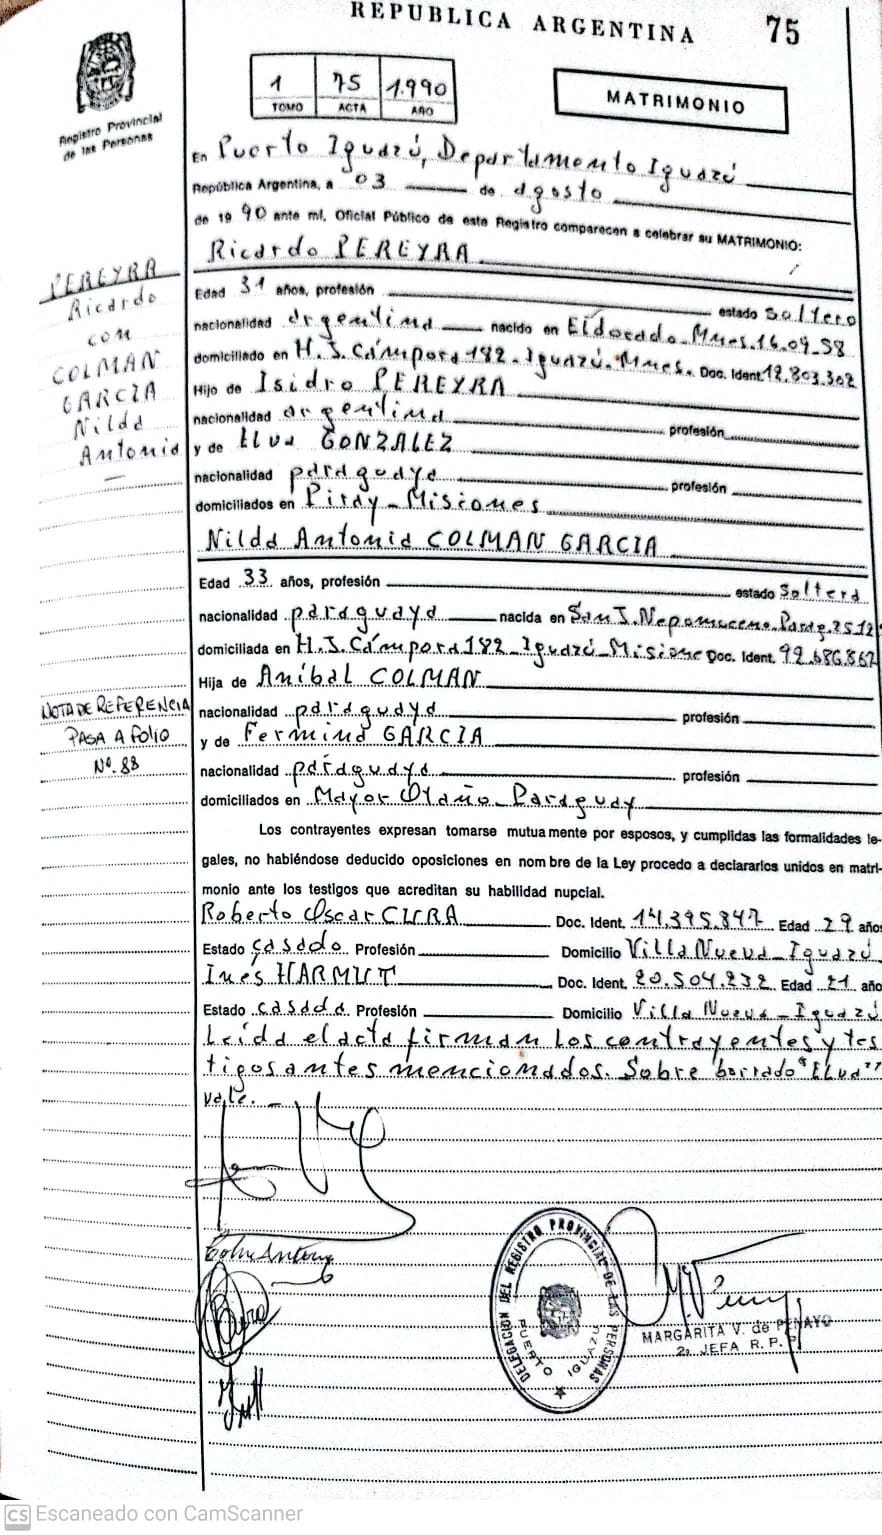 REPUBLICA ARGENTINA 75
Registro Provincial
de las Personas
1 75 1.990
TOMO ACTA AÑO
MATRIMONIO
En Puerto Iguazú, Departamento Iguazú
República Argentina, a 03 de agosto
de 19 90 ante mí, Oficial Público de este Registro comparecen a celebrar su MATRIMONIO:
Ricardo PEREYRA
PEREYRA
Ricardo
con
COLMAN
GARCIA
Nilda
Antonia
Edad 31 años, profesión estado Soltero
nacionalidad argentina nacido en Eldorado Mnes. 16.09.58
domiciliado en H. J. Cámpora 182 - Iguazú. Mnes. Doc. Ident. 12.803.302
Hijo de Isidro PEREYRA
nacionalidad argentina profesión
y de Elva GONZALEZ
nacionalidad paraguaya profesión
domiciliados en Piray - Misiones
Nilda Antonia COLMAN GARCIA
Edad 33 años, profesión estado Soltera
nacionalidad paraguaya nacida en San J. Nepomuceno. Parag. 25.12
domiciliada en H. J. Cámpora 182 - Iguazú - Misione Doc. Ident. 92.686.862
Hija de Aníbal COLMAN
NOTA DE REFERENCIA
PASA A FOLIO
Nº. 88
nacionalidad paraguaya profesión
y de Fermina GARCIA
nacionalidad paraguaya profesión
domiciliados en Mayor Otaño - Paraguay
Los contrayentes expresan tomarse mutuamente por esposos, y cumplidas las formalidades le-
gales, no habiéndose deducido oposiciones en nombre de la Ley procedo a declararlos unidos en matri-
monio ante los testigos que acreditan su habilidad nupcial.
Roberto Oscar CURA Doc. Ident. 14.395.847 Edad 29 años
Estado casado Profesión Domicilio Villa Nueva - Iguazú
Inés HARMUT Doc. Ident. 20.504.232 Edad 21 año
Estado casada Profesión Domicilio Villa Nueva - Iguazú
Leída el acta firman los contrayentes y tes
tigos antes mencionados. Sobre borrado "Elva"
Vale. -
DELEGACION DEL REGISTRO PROVINCIAL DE LAS PERSONAS
PUERTO IGUAZU
MARGARITA V. de PENAYO
2ª JEFA R. P. P.
CS Escaneado con CamScanner